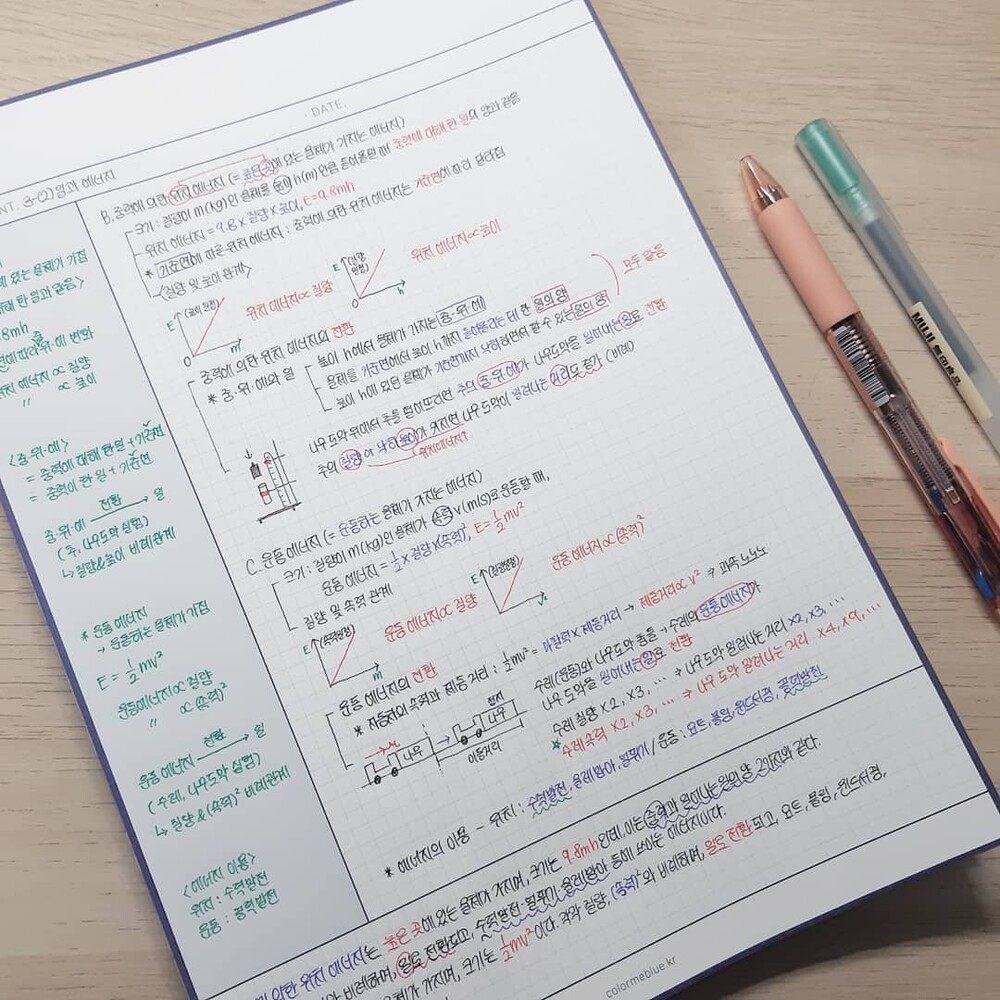 · DATE.
NT. 3-(2) 일과 에너지
B. 중력에 의한 위치 에너지 (= 높은 곳에 있는 물체가 가지는 에너지)
크기 : 질량이 m(kg)인 물체를 높이 h(m)만큼 들어올릴 때 중력에 대해 한 일의 양과 같음
위치 에너지 = 9.8 × 질량 × 높이, E = 9.8mh
* 기준면에 따른 위치 에너지 : 중력에 의한 위치 에너지는 기준면에 따라 달라짐
<질량 및 높이 관계>
E (높이 일정)
0 m
위치 에너지 ∝ 질량
E (질량 일정)
0 h
위치 에너지 ∝ 높이
중력에 의한 위치 에너지의 전환
* 중·위·에와 일
높이 h에서 물체가 가지는 중·위·에
물체를 기준면에서 높이 h까지 들어올리는 데 한 일의 양
높이 h에 있던 물체가 기준면까지 낙하하면서 할 수 있는 일의 양
모두 같음
나무 도막 위에서 추를 떨어뜨리면 추의 중·위·에가 나무 도막을 밀어내는 일로 전환
추의 질량 or 낙하 높이가 커지면 나무 도막이 밀려나는 거리도 증가 (비례)
위치에너지↑
C. 운동 에너지 (= 운동하는 물체가 가지는 에너지)
크기 : 질량이 m(kg)인 물체가 속력 v(m/s)로 운동할 때,
운동 에너지 = ½ × 질량 × (속력)², E = ½mv²
질량 및 속력 관계
E (속력일정)
0 m
운동 에너지 ∝ 질량
E (질량일정)
0 v²
운동 에너지 ∝ (속력)²
운동 에너지의 전환
* 자동차의 속력과 제동 거리 : ½mv² = 마찰력 × 제동거리 → 제동거리 ∝ v² ⇒ 과속 노노노
나무
정지
나무
이동거리
수레(운동)와 나무도막 충돌 → 수레의 운동 에너지가
나무 도막을 밀어내는 일로 전환
수레 질량 ×2, ×3, … ⇒ 나무 도막 밀려나는 거리 ×2, ×3, …
수레 속력 ×2, ×3, … ⇒ 나무 도막 밀려나는 거리 ×4, ×9, …
* 에너지의 이용 - 위치 : 수력발전, 물레방아, 널뛰기 / 운동 : 요트, 볼링, 윈드서핑, 풍력발전
에 있는 물체가 가짐
대해 한 일과 같음>
.8mh
면에 따라 위·에 변화
위치 에너지 ∝ 질량
〃 ∝ 높이
<중·위·에>
= 중력에 대해 한 일 + 기준면
= 중력이 한 일 + 기준면
중·위·에 전환→ 일
(추, 나무도막 실험)
↳ 질량&높이 비례관계
* 운동 에너지
→ 운동하는 물체가 가짐
E = ½mv²
운동에너지 ∝ 질량
〃 ∝ (속력)²
운동 에너지 전환→ 일
(수레, 나무도막 실험)
↳ 질량 & (속력)² 비례관계
<에너지 이용>
위치 : 수력발전
운동 : 풍력발전
의한 위치 에너지는 높은 곳에 있는 물체가 가지며, 크기는 9.8mh인데, 이는 중력과 일이나 일의 양 2가지와 같다.
와 비례하며, 일로 전환되고, 수력발전·널뛰기·물레방아 등에 쓰이는 에너지다.
물체가 가지며, 크기는 ½mv²이다. 각각 질량, (속력)²와 비례하며, 일로 전환되고, 요트, 볼링, 윈드서핑,
colormeblue.kr
MUJI 無印良品